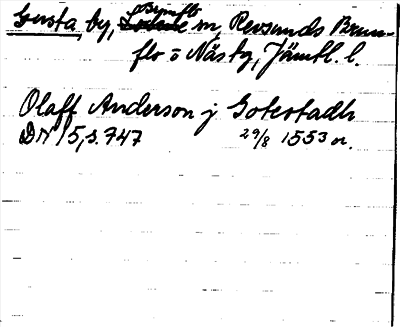 Gusta, by, Brunflo sn, Revsunds Brun-
flo o Näs tg, Jämtl. l.
Olaff Anderson j Gotestadh
DN 15, s. 747 29/8 1553 or.